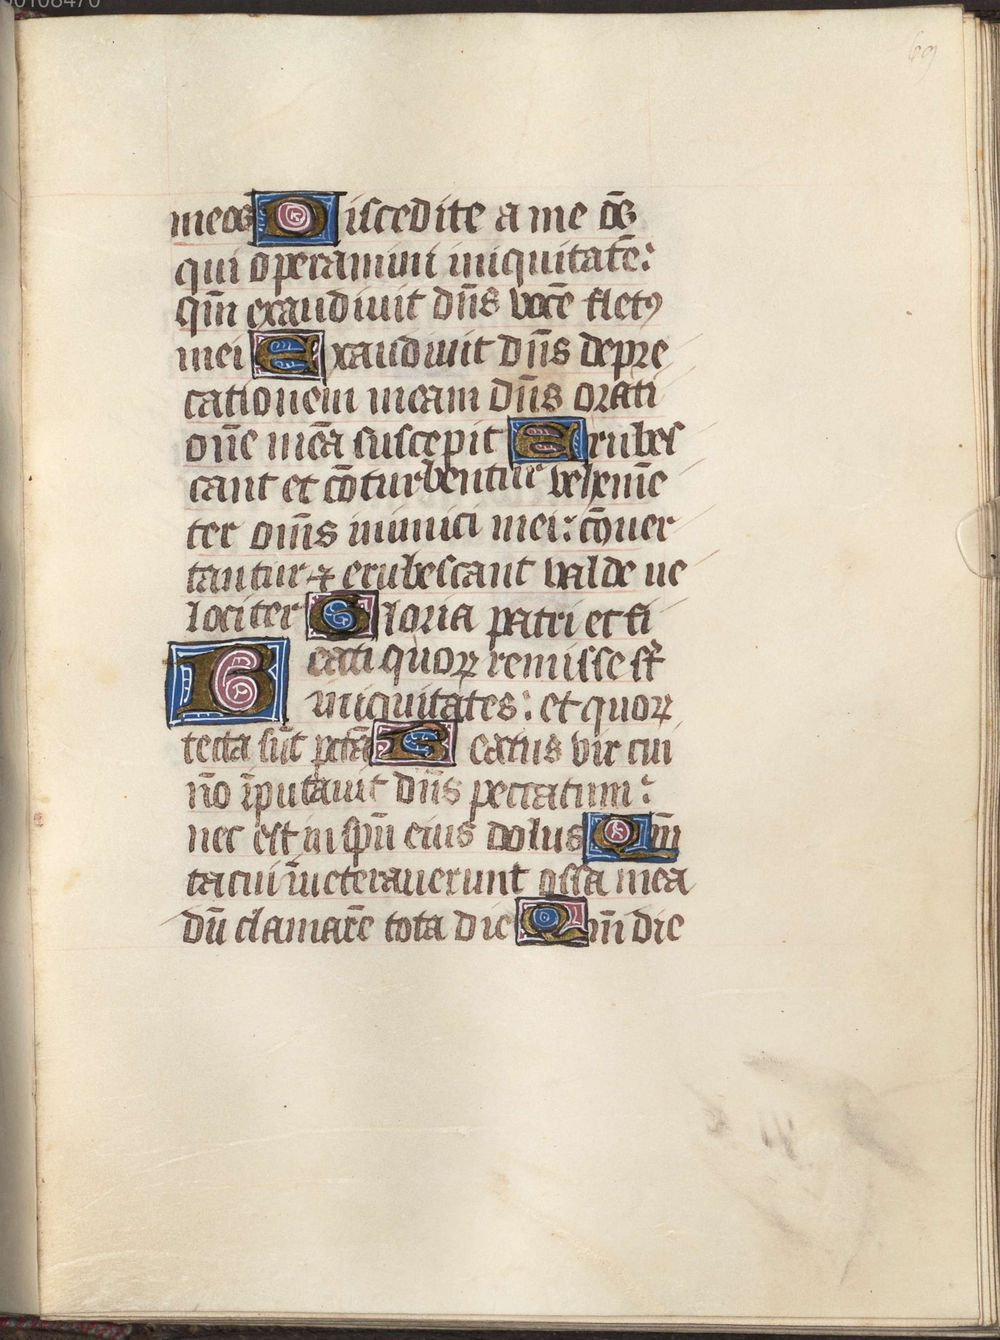 00108470
69
meos Discedite a me õs
qui operamini iniquitatē:
Qm̄ exaudiuit dn̄s vocē fletꝰ
mei Exaudiuit dn̄s depre
cationem meam dn̄s orati
onē meā suscepit Erubes
cant et cōturbentur vehemē
ter om̄s inimici mei: cōuer
tantur ⁊ erubescant valde ue
lociter Gloria patri et fi
Beati quoꝝ remisse st̄
iniquitates: et quoꝝ
tecta sūt pctā Beatus vir cui
nō īputauit dn̄s peccatum:
nec est in spū eius dolus Qm̄
tacui īueterauerunt ossa mea
dū clamarē tota die Qm̄ die